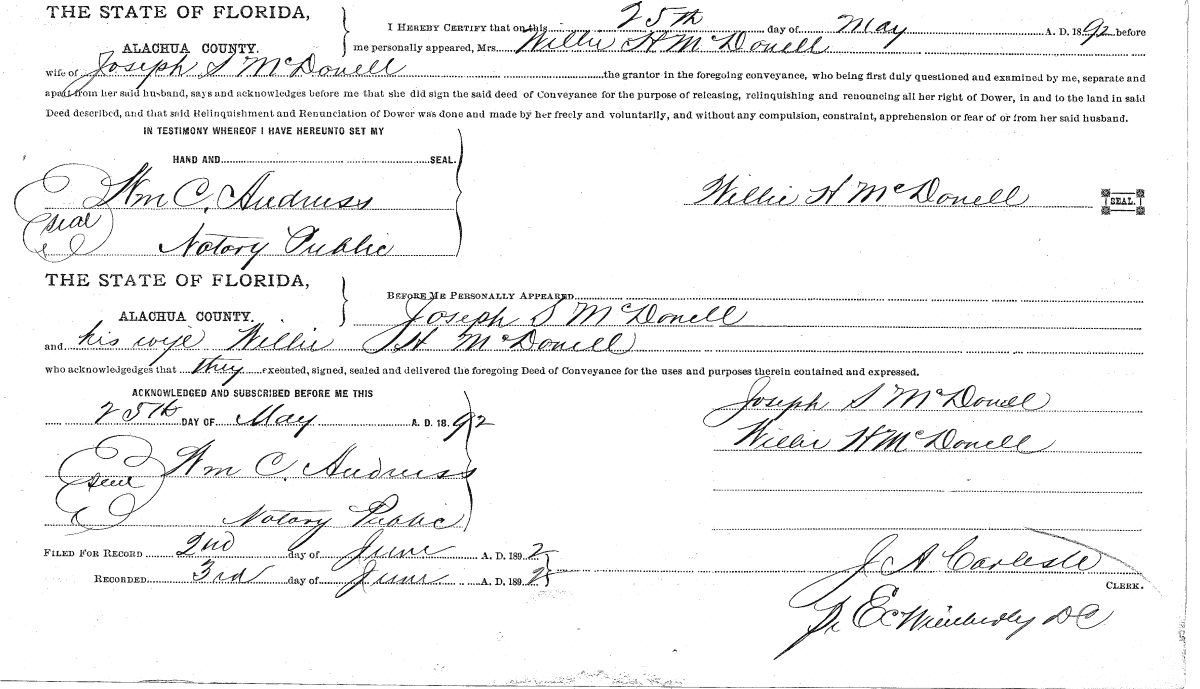 THE STATE OF FLORIDA,
ALACHUA COUNTY.
I HEREBY CERTIFY that on this 25th day of May A. D. 1892 before
me personally appeared, Mrs. Willie H McDonell
wife of Joseph S McDonell the grantor in the foregoing conveyance, who being first duly questioned and examined by me, separate and
apart from her said husband, says and acknowledges before me that she did sign the said deed of Conveyance for the purpose of releasing, relinquishing and renouncing all her right of Dower, in and to the land in said
Deed described, and that said Relinquishment and Renunciation of Dower was done and made by her freely and voluntarily, and without any compulsion, constraint, apprehension or fear of or from her said husband.
IN TESTIMONY WHEREOF I HAVE HEREUNTO SET MY
HAND AND SEAL.
Wm C. Andruss
seal
Notary Public
Willie H McDonell SEAL.
THE STATE OF FLORIDA,
ALACHUA COUNTY.
BEFORE ME PERSONALLY APPEARED
Joseph S McDonell
and his wife Willie H McDonell
who acknowledgedges that they executed, signed, sealed and delivered the foregoing Deed of Conveyance for the uses and purposes therein contained and expressed.
ACKNOWLEDGED AND SUBSCRIBED BEFORE ME THIS
25th DAY OF May A. D. 18.92
Wm C. Andruss
seal
Notary Public
Joseph S McDonell
Willie H McDonell
FILED FOR RECORD 2nd day of June A. D, 1892
RECORDED 3rd day of June A. D, 1892
J A Carlisle
CLERK.
Pr E C Wimberly DC